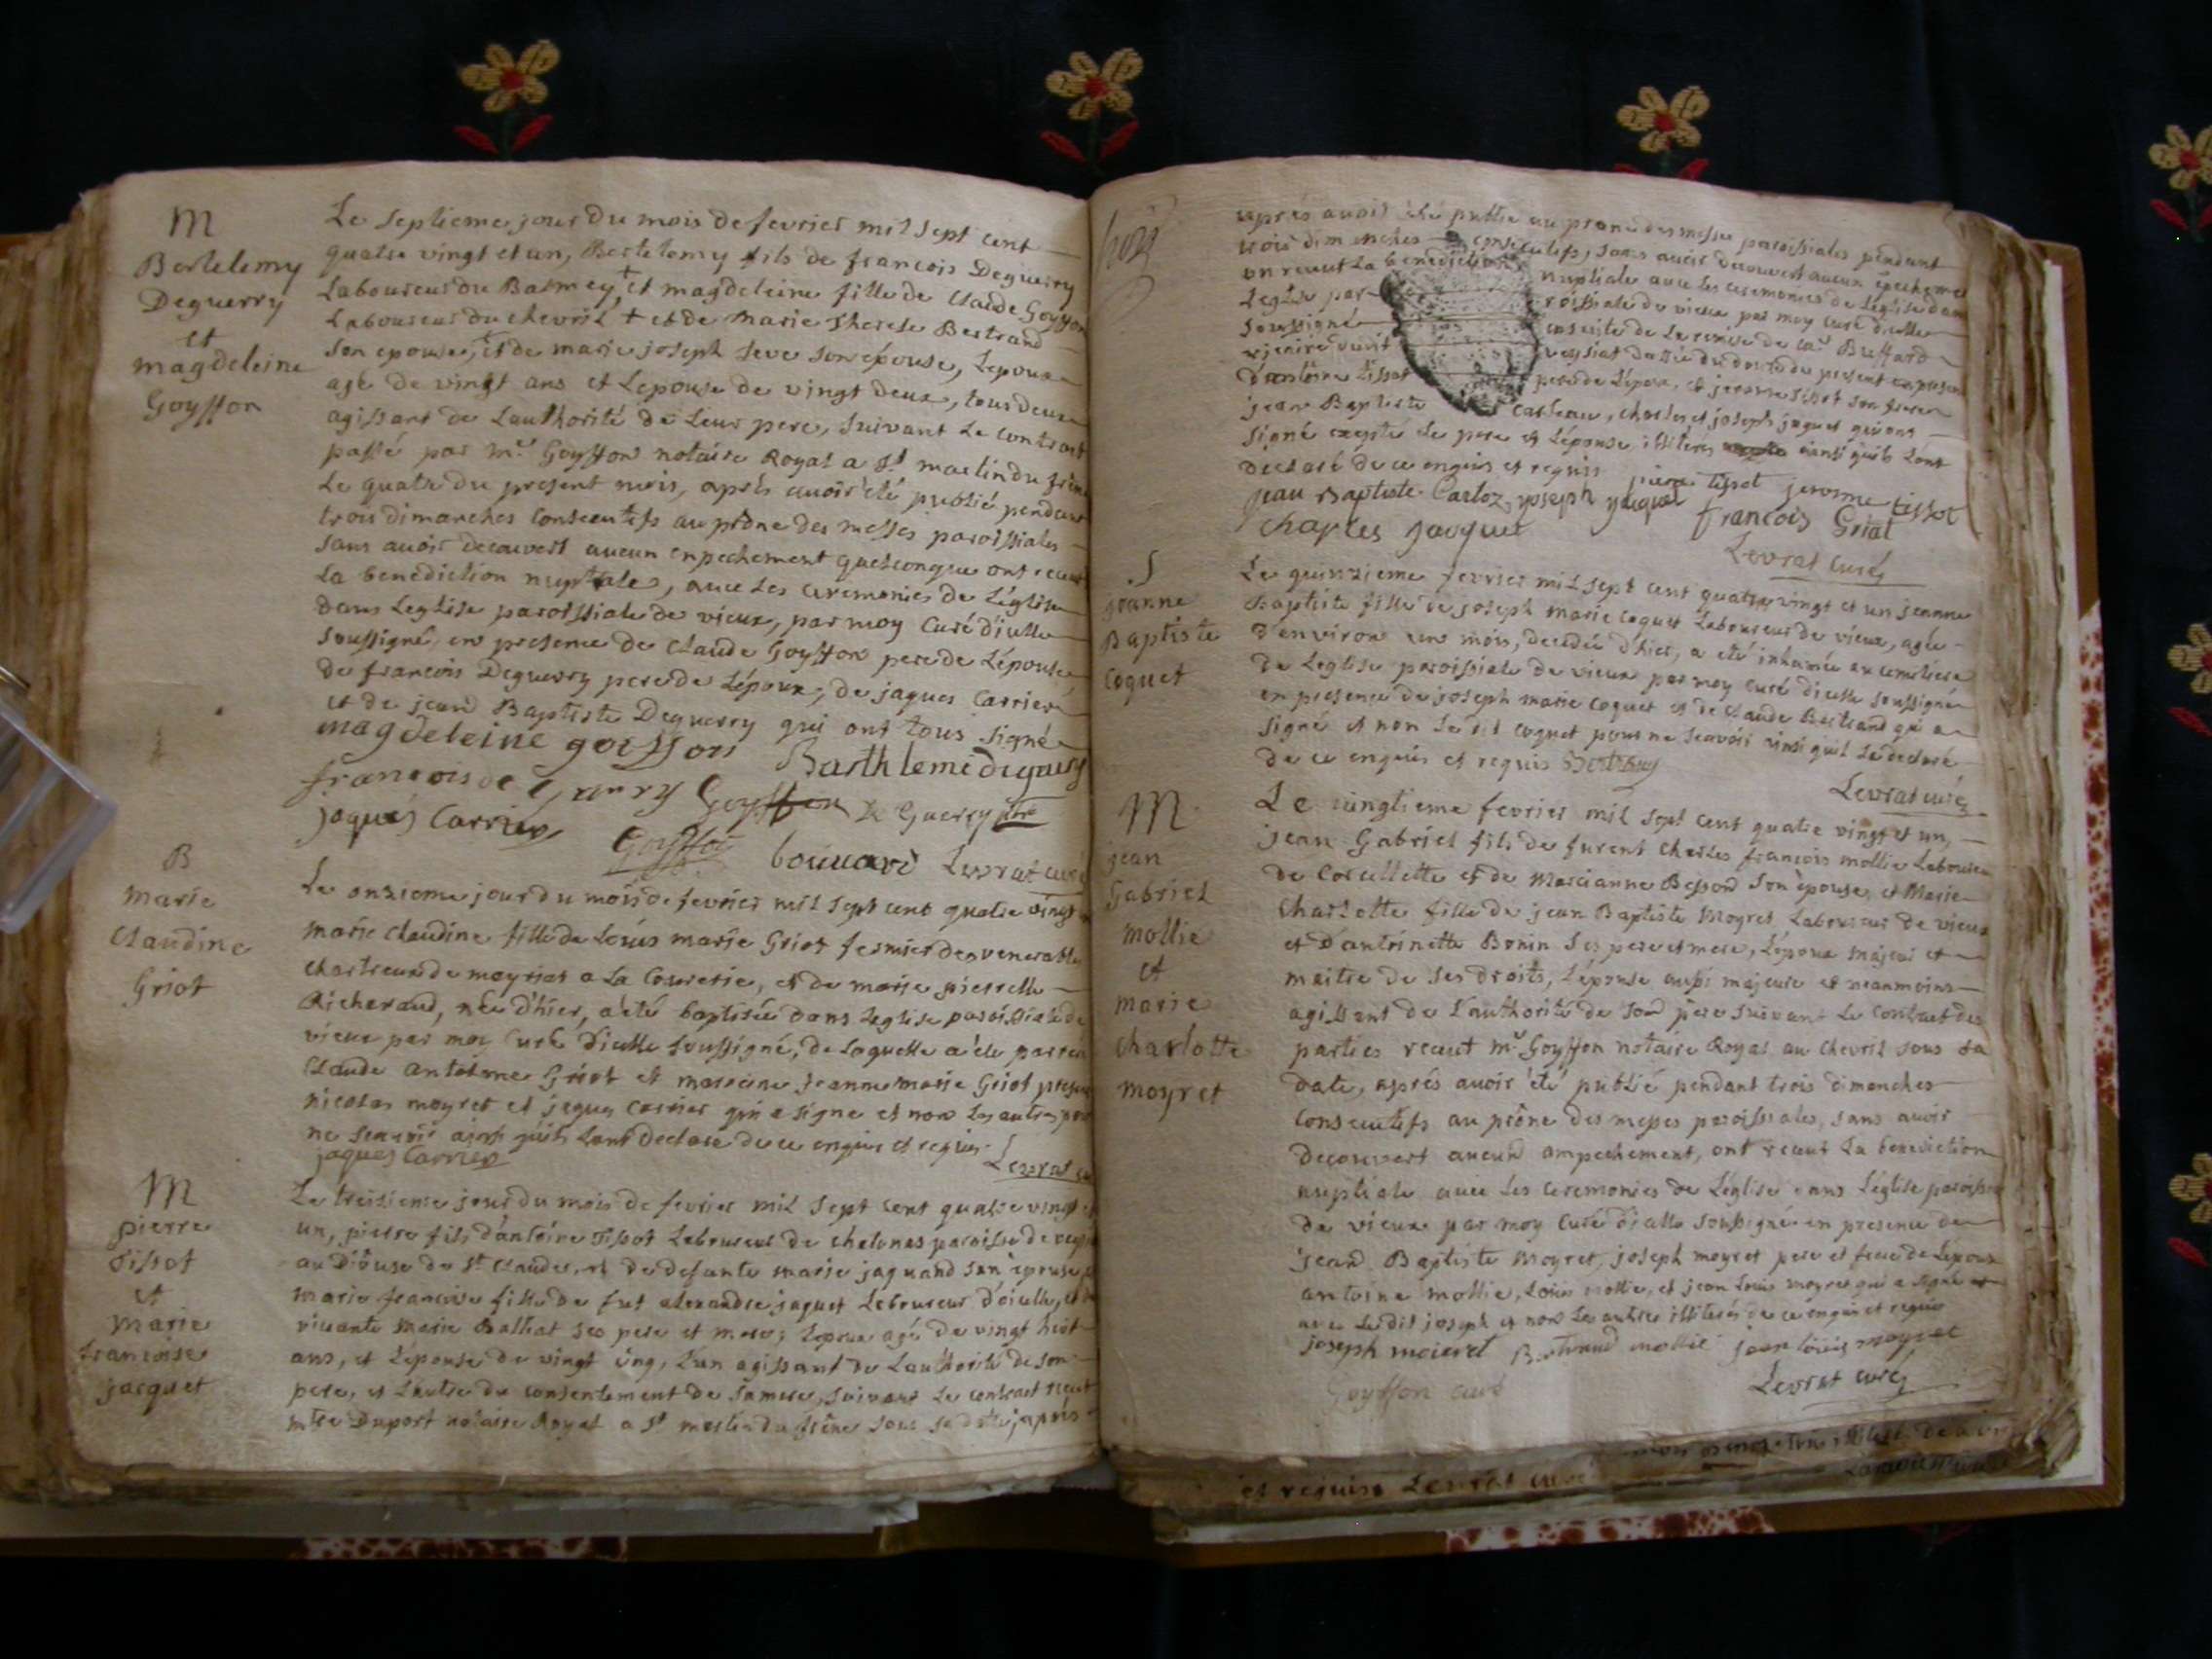 M
Bertelemy
Deguerry
et
magdeleine
Goyffon
Le septieme jour du mois de fevrier mil sept cent
quatre vingt et un, Bertelemy fils de francois Deguerry
Laboureur du Balmey, + et magdeleine fille de Claude Goyffon
Laboureur du chevril + et de Marie Therese Bertrand
son epouse, et de marie joseph seve son épouse, Lepoux
agé de vingt ans et Lepouse de vingt deux, tous deux
agissant de Lauthorité de Leur pere, suivant Le contract
passé par Mr Goyffon notaire Royal a St martin du frene
Le quatre du present mois, aprés avoir été publié pendant
trois dimanches consecutifs au prône des messes paroissiales
sans avoir decouvert aucun enpechement quelconque ont receut
La benediction nuptiale, avec Les ceremonies de Léglise
dans Leglise paroissiale de vieux, par moy Curé d'icelle
soussigné, en presence de Claude Goyffon pere de Lépouse
de francois Deguerry pere de Lépoux, de jaques Carrier
et de jean Baptiste Deguerry qui ont tous signé
magdeleine goiffon Barthlemi deguerry
francois de Guerry Goyffon De Guerry ptre
jaques Carrier Goyffon bouvard Levrat curé
B
marie
Claudine
Griot
Le onzieme jour du mois de fevrier mil sept cent quatre vingt
marie Claudine fille de Loüis marie Griot fermier des venerables
chartreux de meyriat a La Couverie, et de marie pierrette
Richeraud, née d'hier, a été baptisée dans Leglise paroissiale de
vieux par moy Curé d'icelle soussigné, de Laquelle a été parrein
Claude antoinne Griot et marreine jeanne marie Griot presens
nicolas moyret et jaques carrier qui a signé et non Les autres pour
ne scavoir ainsi quils Lont declare de ce enquis et requis
jaques Carrier Levrat curé
M
pierre
Tissot
et
Marie
francoise
jacquet
Le treisieme jour du mois de fevrier mil sept cent quatre vingt et
un, pierre fils d'antoine Tissot Laboureur de chalonas paroisse de
au Diôcese de St Claude, et de defunte marie jaquand son epouse,
marie francoise fille de fut alexandre jaquet Laboureur d'icelle, et de
vivante marie Balliat ses pere et mere; Lepoux agé de vingt huit
ans, et Lépouse de vingt ung, L'un agissant de Lauthorité de son
pere, et Lautre du consentement de sa mere, suivant Le contract receut
mtre Duport notaire Royal a St martin du frêne sous sa datte, aprés
aprés avoir été publié au prone des messes paroissiales pendant
trois dimenches consecutifs, sans avoir decouvert aucun epechement
on receut La benediction nuptiale avec les ceremonies de Léglise dans
Leglise par roissiale de vieux par moy curé d'icelle
soussigné ensuite de La remise de Buffard
vicaire veysiat dattée du douze du present en presence
d'antoine tissot pere de Lépoux, et jerome tissot son frere
jean Baptiste carleaux, charles et joseph jaquet qui ont
signé excepté Le pere et Lépouse illiterés ainsi quils Lont
declaré de ce enquis et requis pierre tissot jerosme tissot
jean Baptiste Carloz, joseph jacquet francois Griot
charles jacquet
Levrat curé
S
jeanne
Baptiste
Coquet
Le quinzieme fevrier mil sept cent quatre vingt et un jeanne
Baptiste fille de joseph marie coquet Laboureur de vieux, agée
d'environ un mois, decedée d'hier, a été inhumée au cemetiere
de Leglise paroissiale de vieux par moy curé d'icelle soussigné
en presence de joseph marie coquet et de Claude Bertrand qui a
signé et non Ledit coquet pour ne scavoir ainsi quil La declaré
de ce enquis et requis Bertrand
Levrat curé
M
jean
Gabriel
Mollie
et
Marie
Charlotte
moyret
Le vingtieme fevrier mil sept cent quatre vingt et un,
jean Gabriel fils de furent charles francois mollie Laboureur
de Corcellette et de Marianne Besson son épouse, et Marie
Charlotte fille de jean Baptiste Moyret Laboureur de vieux
et d'antoinette Bonin ses pere et mere, Lépoux majeur et
maitre de ses droits, Lépouse aussi majeure et neanmoins
agissant de Lauthorité de son pere suivant Le contract des
parties receut Mr Goyffon notaire Royal au chevril sous sa
date, aprés avoir été publié pendant trois dimanches
consecutifs au prône des messes paroissiales, sans avoir
decouvert aucun ampechement, ont receut La benediction
nuptiale avec Les ceremonies de Léglise dans Léglise paroissiale
de vieux par moy Curé d'icelle soussigné en presence de
jean Baptiste Moyret, joseph moyret pere et frere de Lépouse
antoine mollie, Loüis mollie, et jean Louis moyret qui a signé
avec Ledit joseph et non Les autres illiterés de ce enquis et requis
joseph moieret Bertrand mollie jean loüis moyret
Goyffon curé Levrat curé
et requis Levrat curé